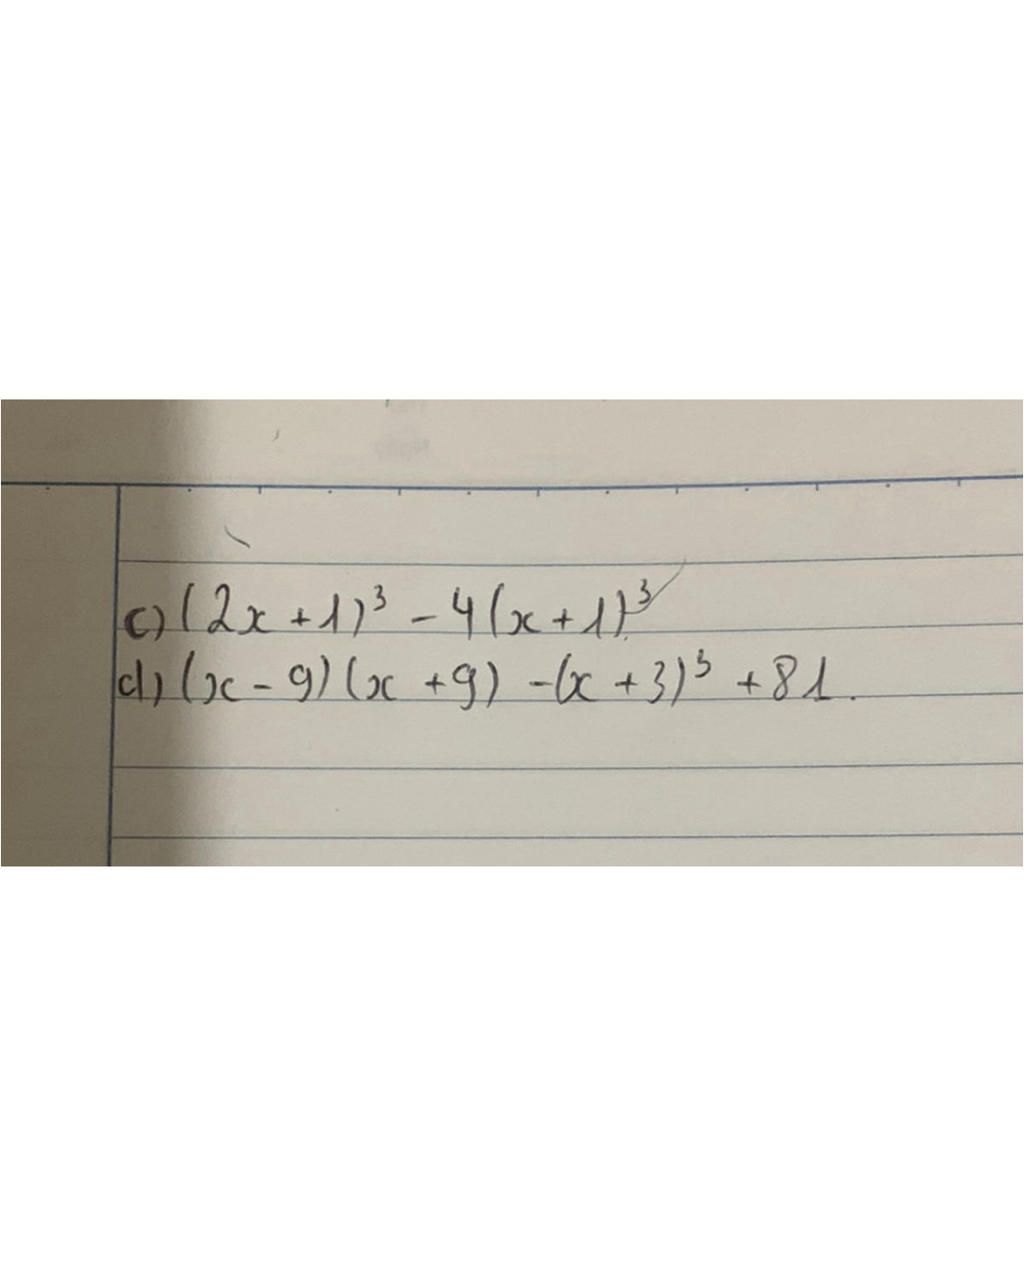 c) (2x+1)³ - 4(x+1)³
d) (x-9)(x+9) -(x+3)³ +81.